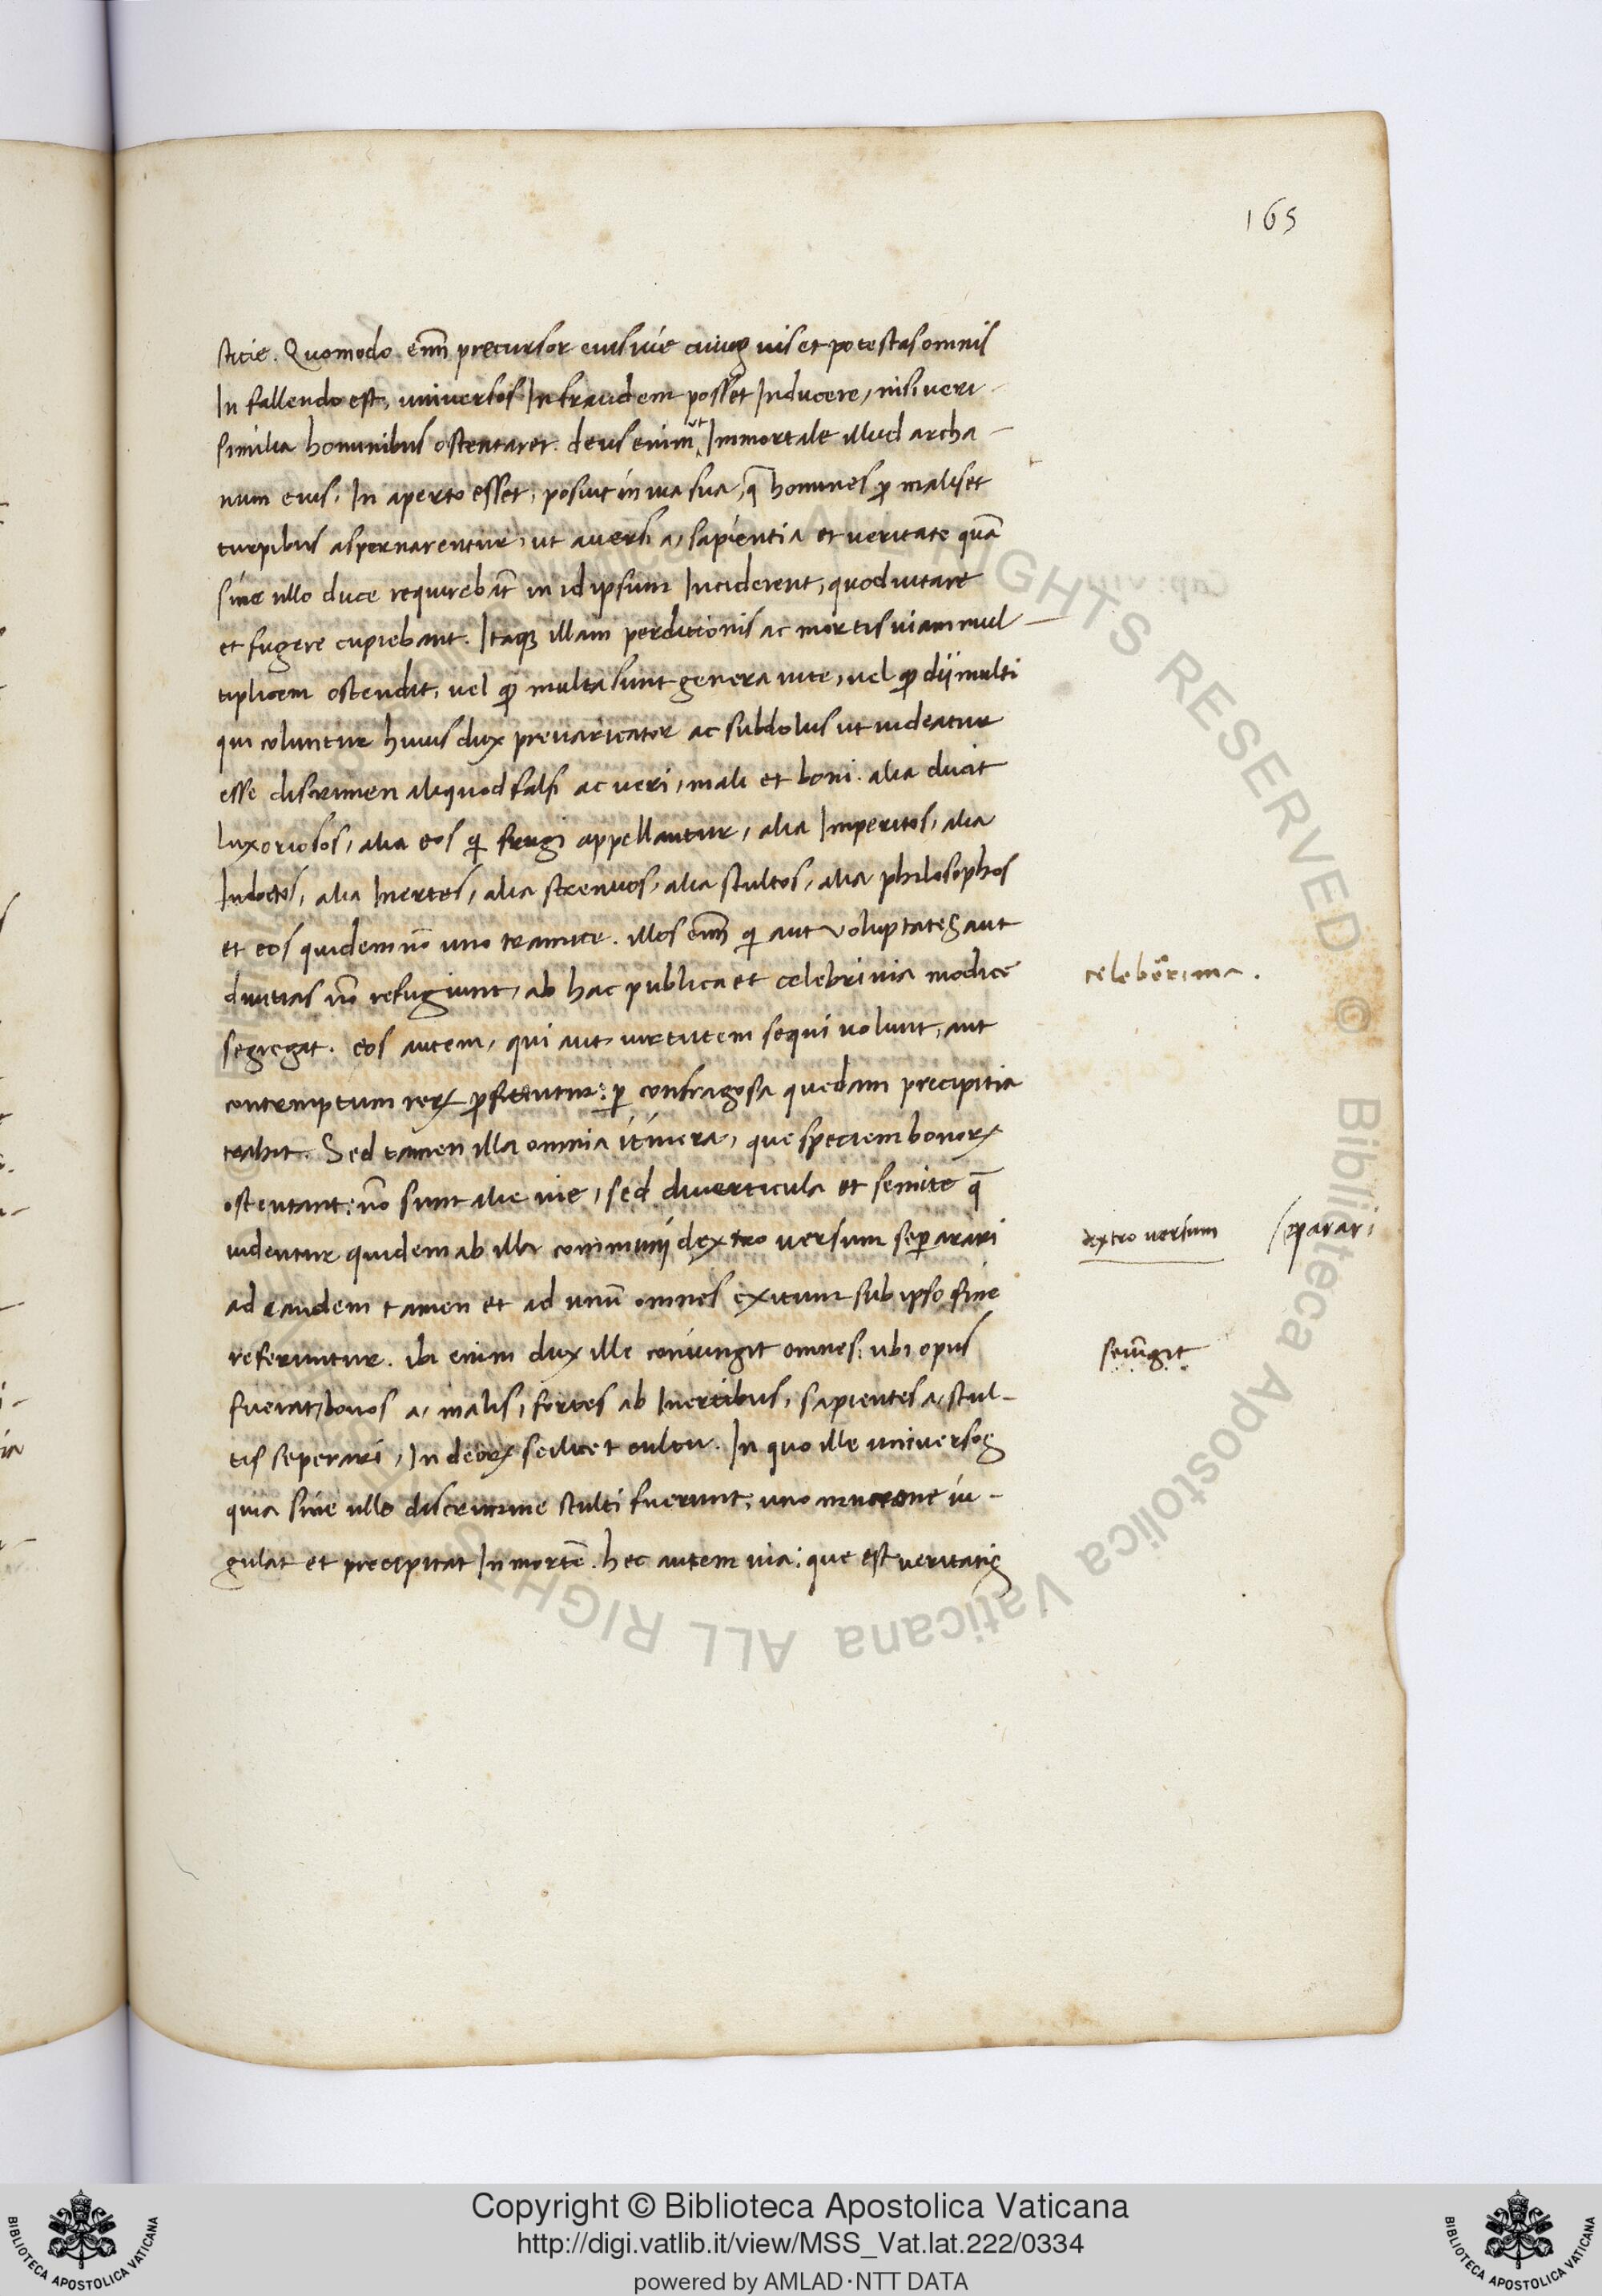 165
sticie. Quomodo. em̅ precursor eius uie cuius uis et potestas omnis
In fallendo est, universos In fraudem posset Inducere, nisi veri
similia hominibus ostentaret. deus enim ut Immortale illud archa-
num eius, In aperto esset, posuit in uia sua, q̅ homines p̱ malis et
turpibus aspernarentur, ut aversi a, sapientia et veritate quā
sine ullo duce requirebāt in id ipsum Inciderent, quod uitare
et fugere cupiebant. Itaqꝫ illam perditionis ac mortis uiam mul-
tiplicem ostendit, uel ꝙ multa sunt genera uite, uel ꝙ dii multi
qui coluntur huius dux prevaricator ac subdolus ut uideatur
esse discrimen aliquod falsi ac ueri, mali et boni. alia ducit
luxoriosos, alia eos q̇ frugi appellantur, alia Imperitos, alia
Indoctos, alia Inertes, alia strenuos, alia stultos, alia philosophos
et eos quidem nō uno tramite. illos em̅ q̇ aut voluptates aut
divitias nō refugiunt, ab hac publica et celebri via modice
celebērima.
segregat. eos autem, qui aut virtutem sequi volunt, aut
contemptum reꝝ ꝓfitentur: ꝑ confragosa quedam precipitia
trahit. Sed tamen illa omnia itinera, que speciem bonoꝝ
ostentant: nō sunt alie vie, sed diverticula et semite q̅
uidentur quidem ab illa communi dextro versum seꝑarari
dextro versum separari
ad eandem tamen et ad unū omnes exitum sub ipso fine
referuntur. ibi enim dux ille coniungit omnes: ubi opus
seiūgit
fuerat, bonos a, malis, fortes ab Inertibus, sapientes a, stul-
tis seperari, In deoꝝ scilicet cultu. In quo ille universos
quia sine ullo discrimine stulti fuerunt, uno mucrone iu-
gulat et precipitat In mortē. hec autem via: que est veritatis
ALL RIGHTS RESERVED © Biblioteca Apostolica Vaticana
Copyright © Biblioteca Apostolica Vaticana
http://digi.vatlib.it/view/MSS_Vat.lat.222/0334
powered by AMLAD·NTT DATA
BIBLIOTECA APOSTOLICA VATICANA
BIBLIOTECA APOSTOLICA VATICANA